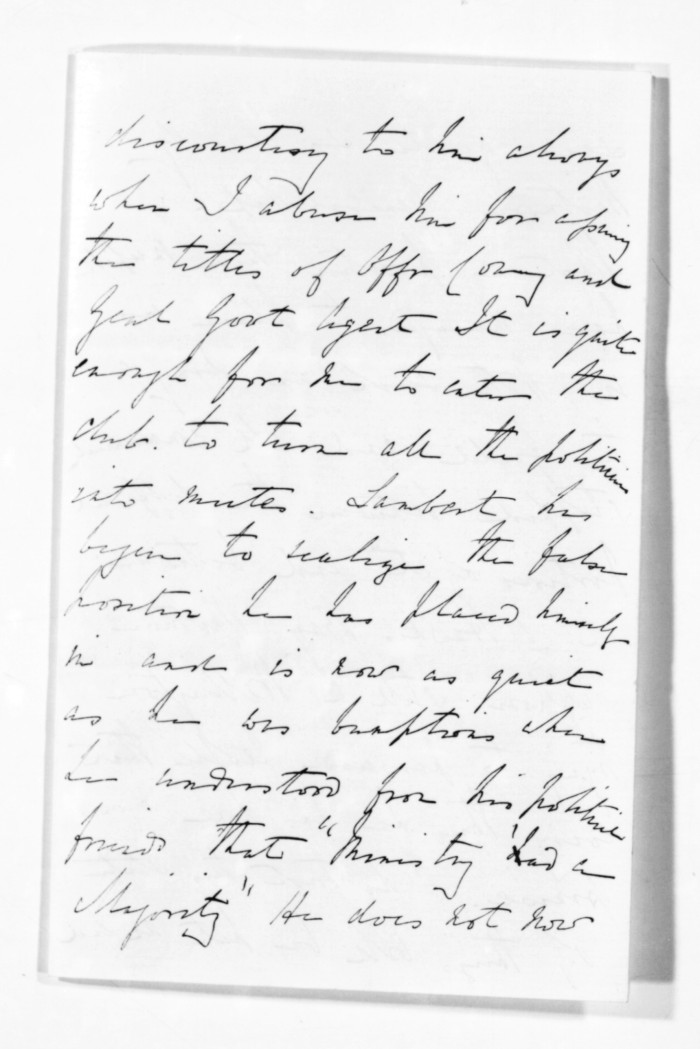 discourtesy to him always
when I abuse him for assuming
the titles of Offr Comg and
Genl Govt Agent It is quite
enough for me to enter the
club. to turn all the politicians
into mutes. Lambert has
begun to realize the false
position he has placed himself
in and is now as quiet
as he was bumptious when
he understood from his political
friends that "Ministry had a
Majority" He does not now